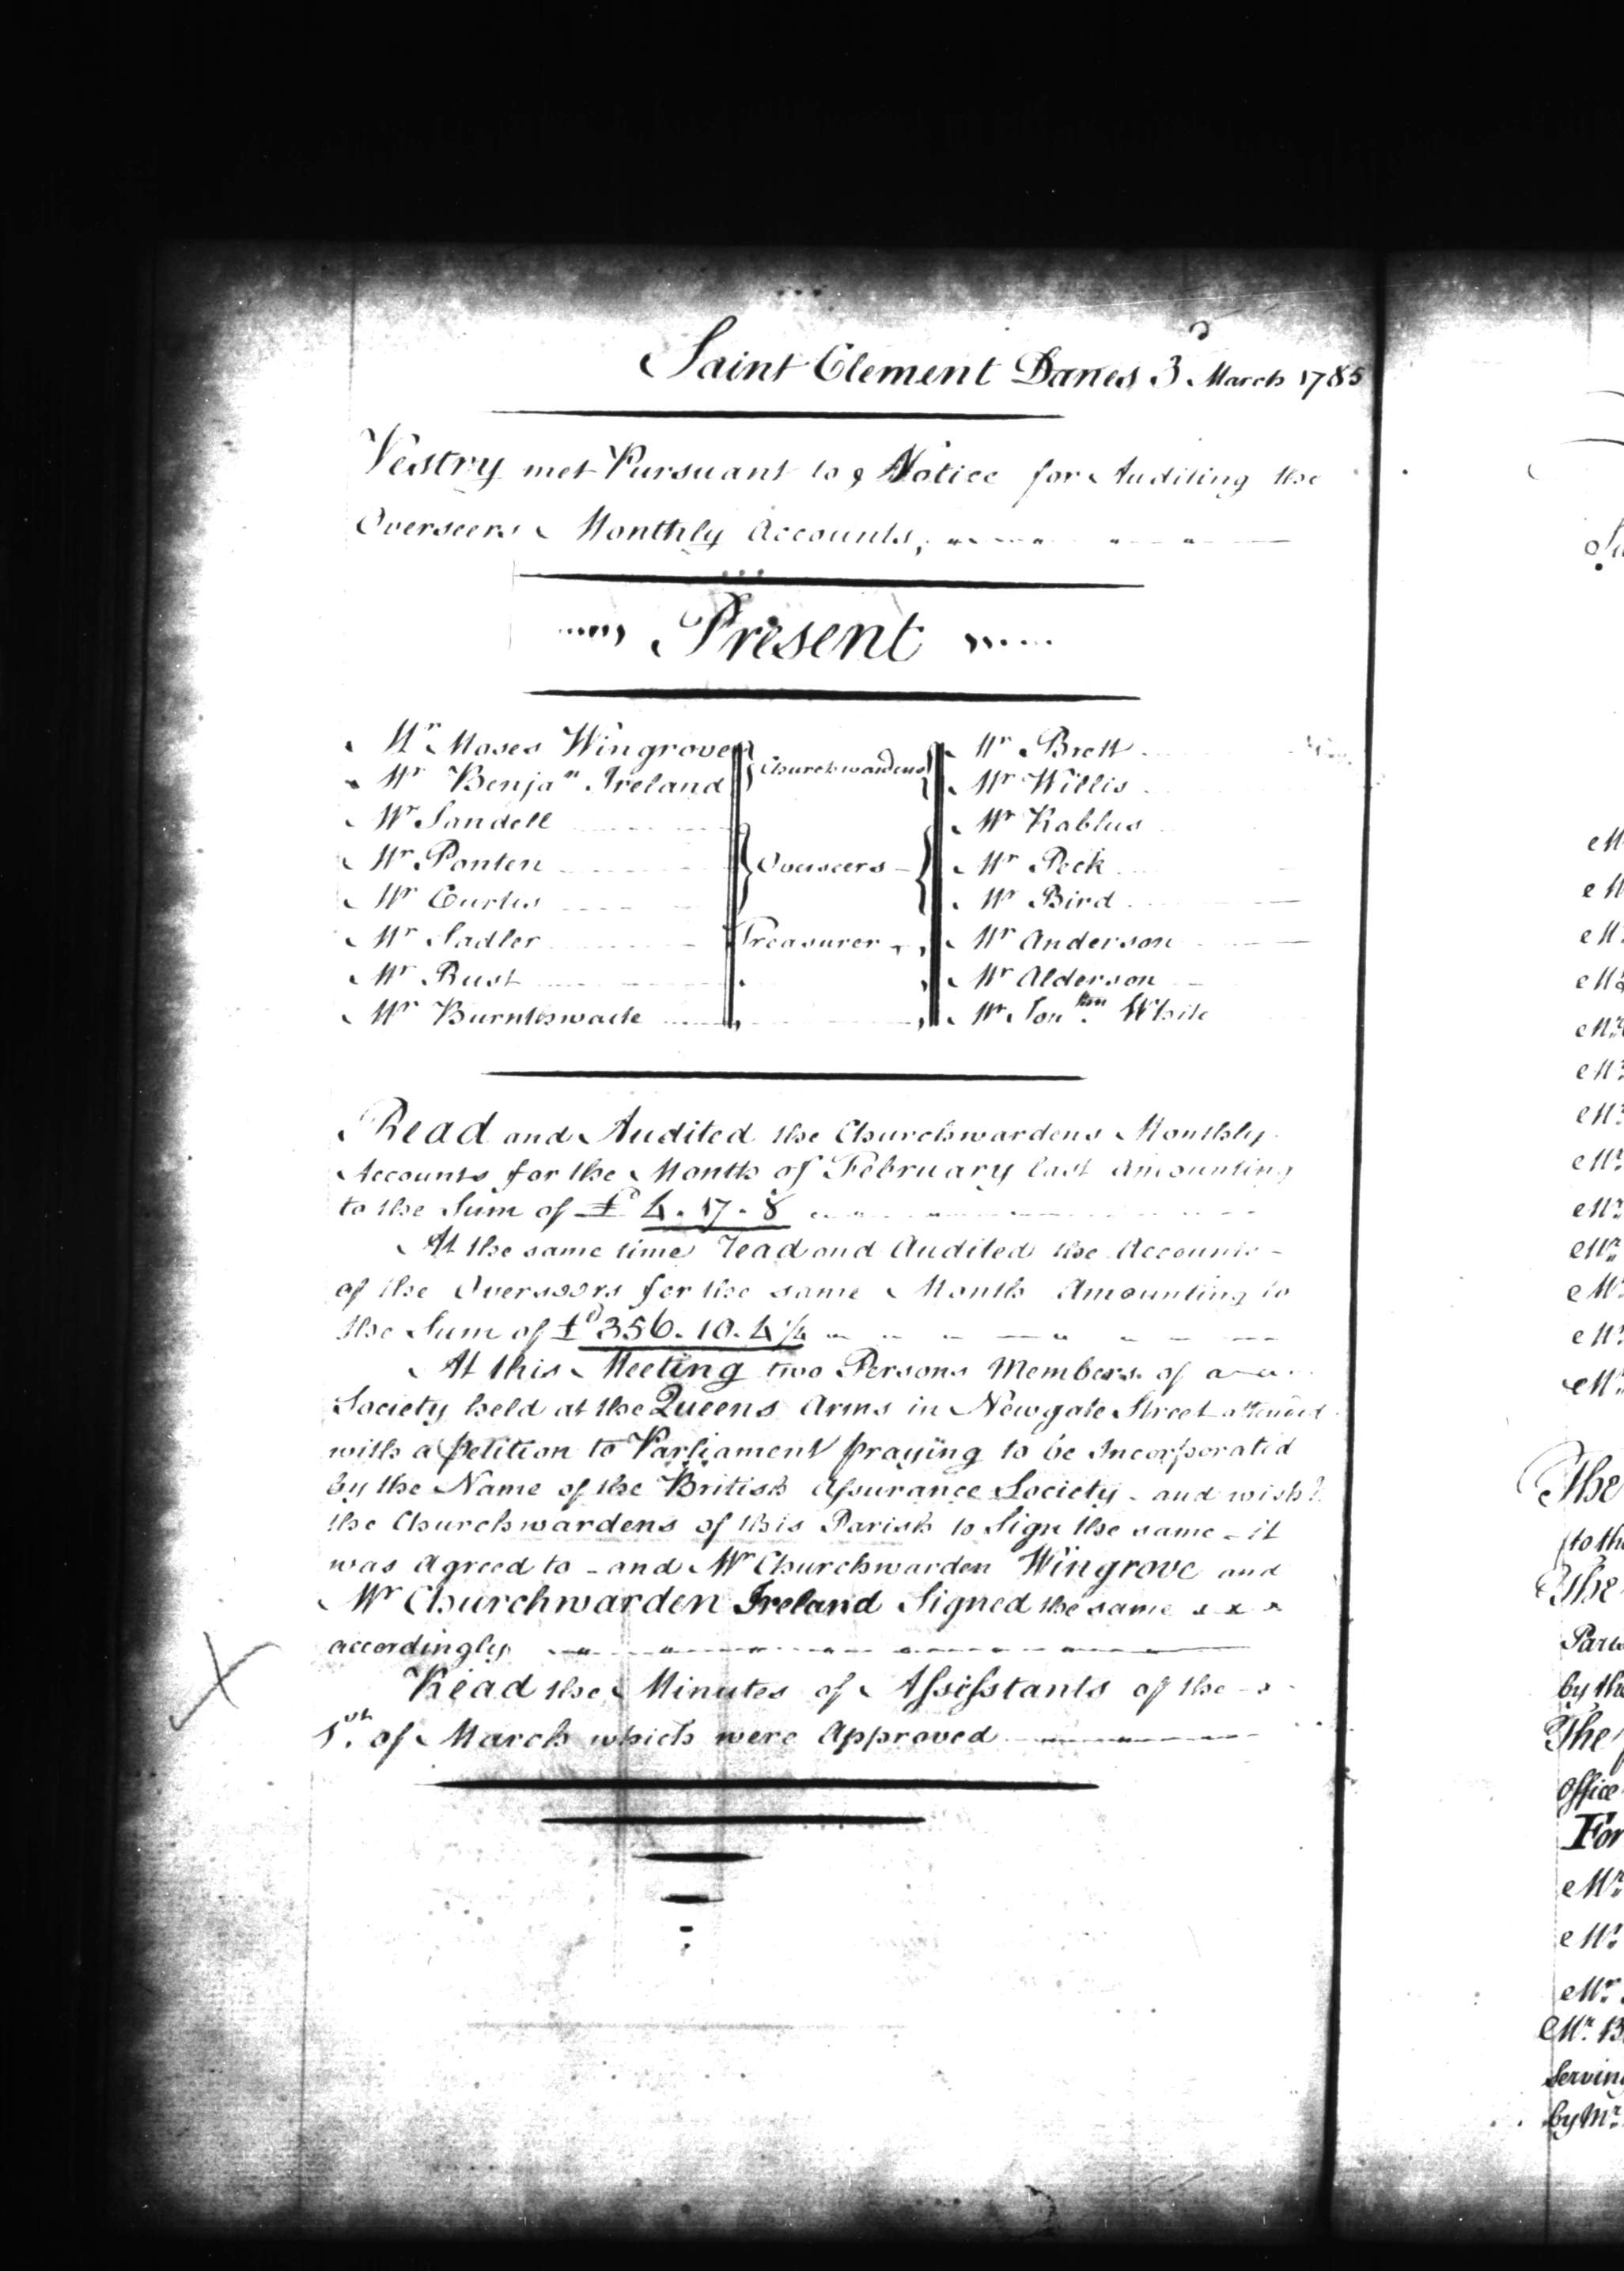 Saint Clement Danes 3d March 1785
Vestry met Pursuant to Notice for Auditing the
Overseers Monthly Accounts,
Present
Mr Moses Wingrove
Mr Benjan Ireland
Churchwardens
Mr Sandell
Mr Ponten
Mr Curtis
Overseers
Mr Sadler
Treasurer
Mr Rust
Mr Burnthwaite
Mr Brett
Mr Willis
Mr Kablus
Mr Peck
Mr Bird
Mr Anderson
Mr Alderson
Mr Jonthn White
Read and Audited the Churchwardens Monthly
Accounts for the Month of February last Amounting
to the Sum of £ 4. 17. 8
At the same time read and Audited the Accounts
of the Overseers for the same Month Amounting to
the Sum of £ 356. 10. 4¼
At this Meeting two Persons Members of a
Society held at the Queens Arms in Newgate Street attended
with a Petition to Parliament praying to be Incorporated
by the Name of the British Assurance Society - and wishd
the Churchwardens of this Parish to Sign the same - it
was agreed to - and Mr Churchwarden Wingrove and
Mr Churchwarden Ireland Signed the same
accordingly
Read the Minutes of Assistants of the
1st of March which were Approved
The
to the
The
by the
The
Office
For
Mr
Mr
Mr
Mr
Serving
by Mr